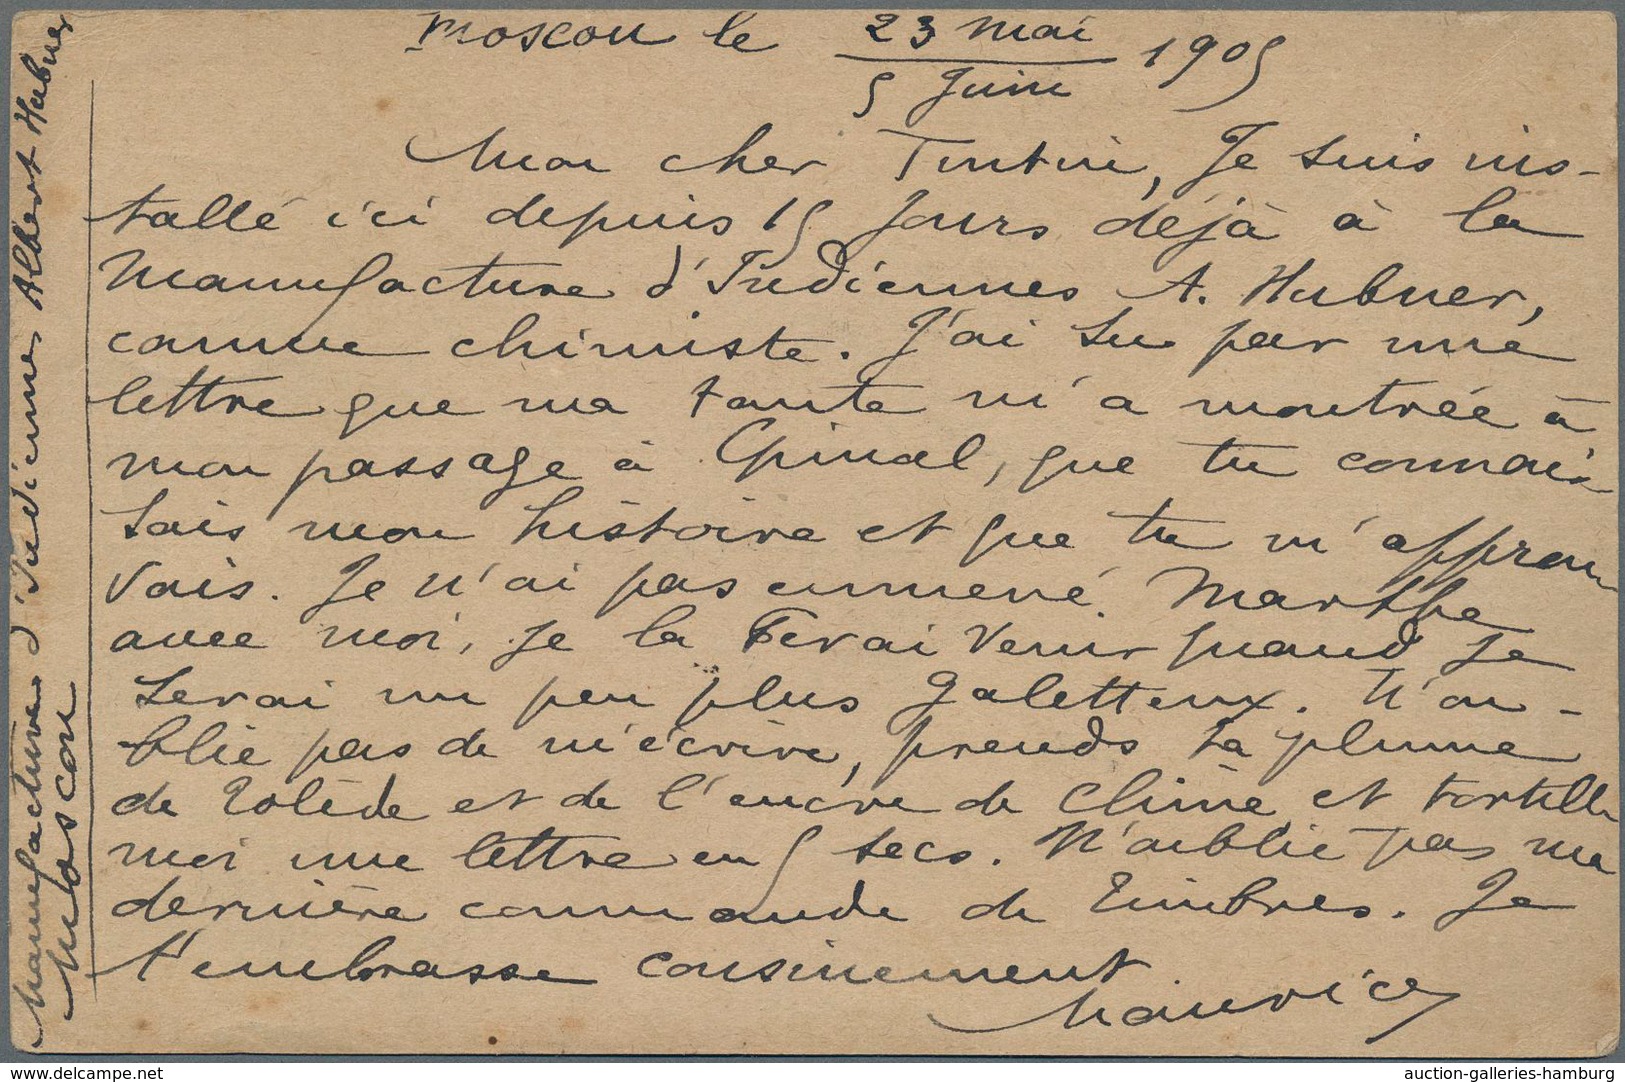 Moscou le 23 mai 1905
5 Juin
Mon cher Tintin, Je suis ins-
tallé ici depuis 15 jours déjà à la
Manufacture d'Indiennes A. Hubner,
comme chimiste. J'ai su par une
lettre que ma tante m'a montrée à
mon passage à Epinal, que tu connais
sais mon histoire et que tu m'approu
vais. Je n'ai pas emmené Marthe
avec moi, je la ferai venir quand je
serai un peu plus galetteux. N'ou-
blie pas de m'écrire, prends ta plume
de Tolède et de l'encre de Chine et tortille
moi une lettre en 5 secs. N'oublie pas ma
dernière commande de Timbres. Je
t'embrasse cousinement
Maurice
Manufacture d'Indiennes Albert Hubner
Moscou
www.delcampe.net
auction-galleries-hamburg